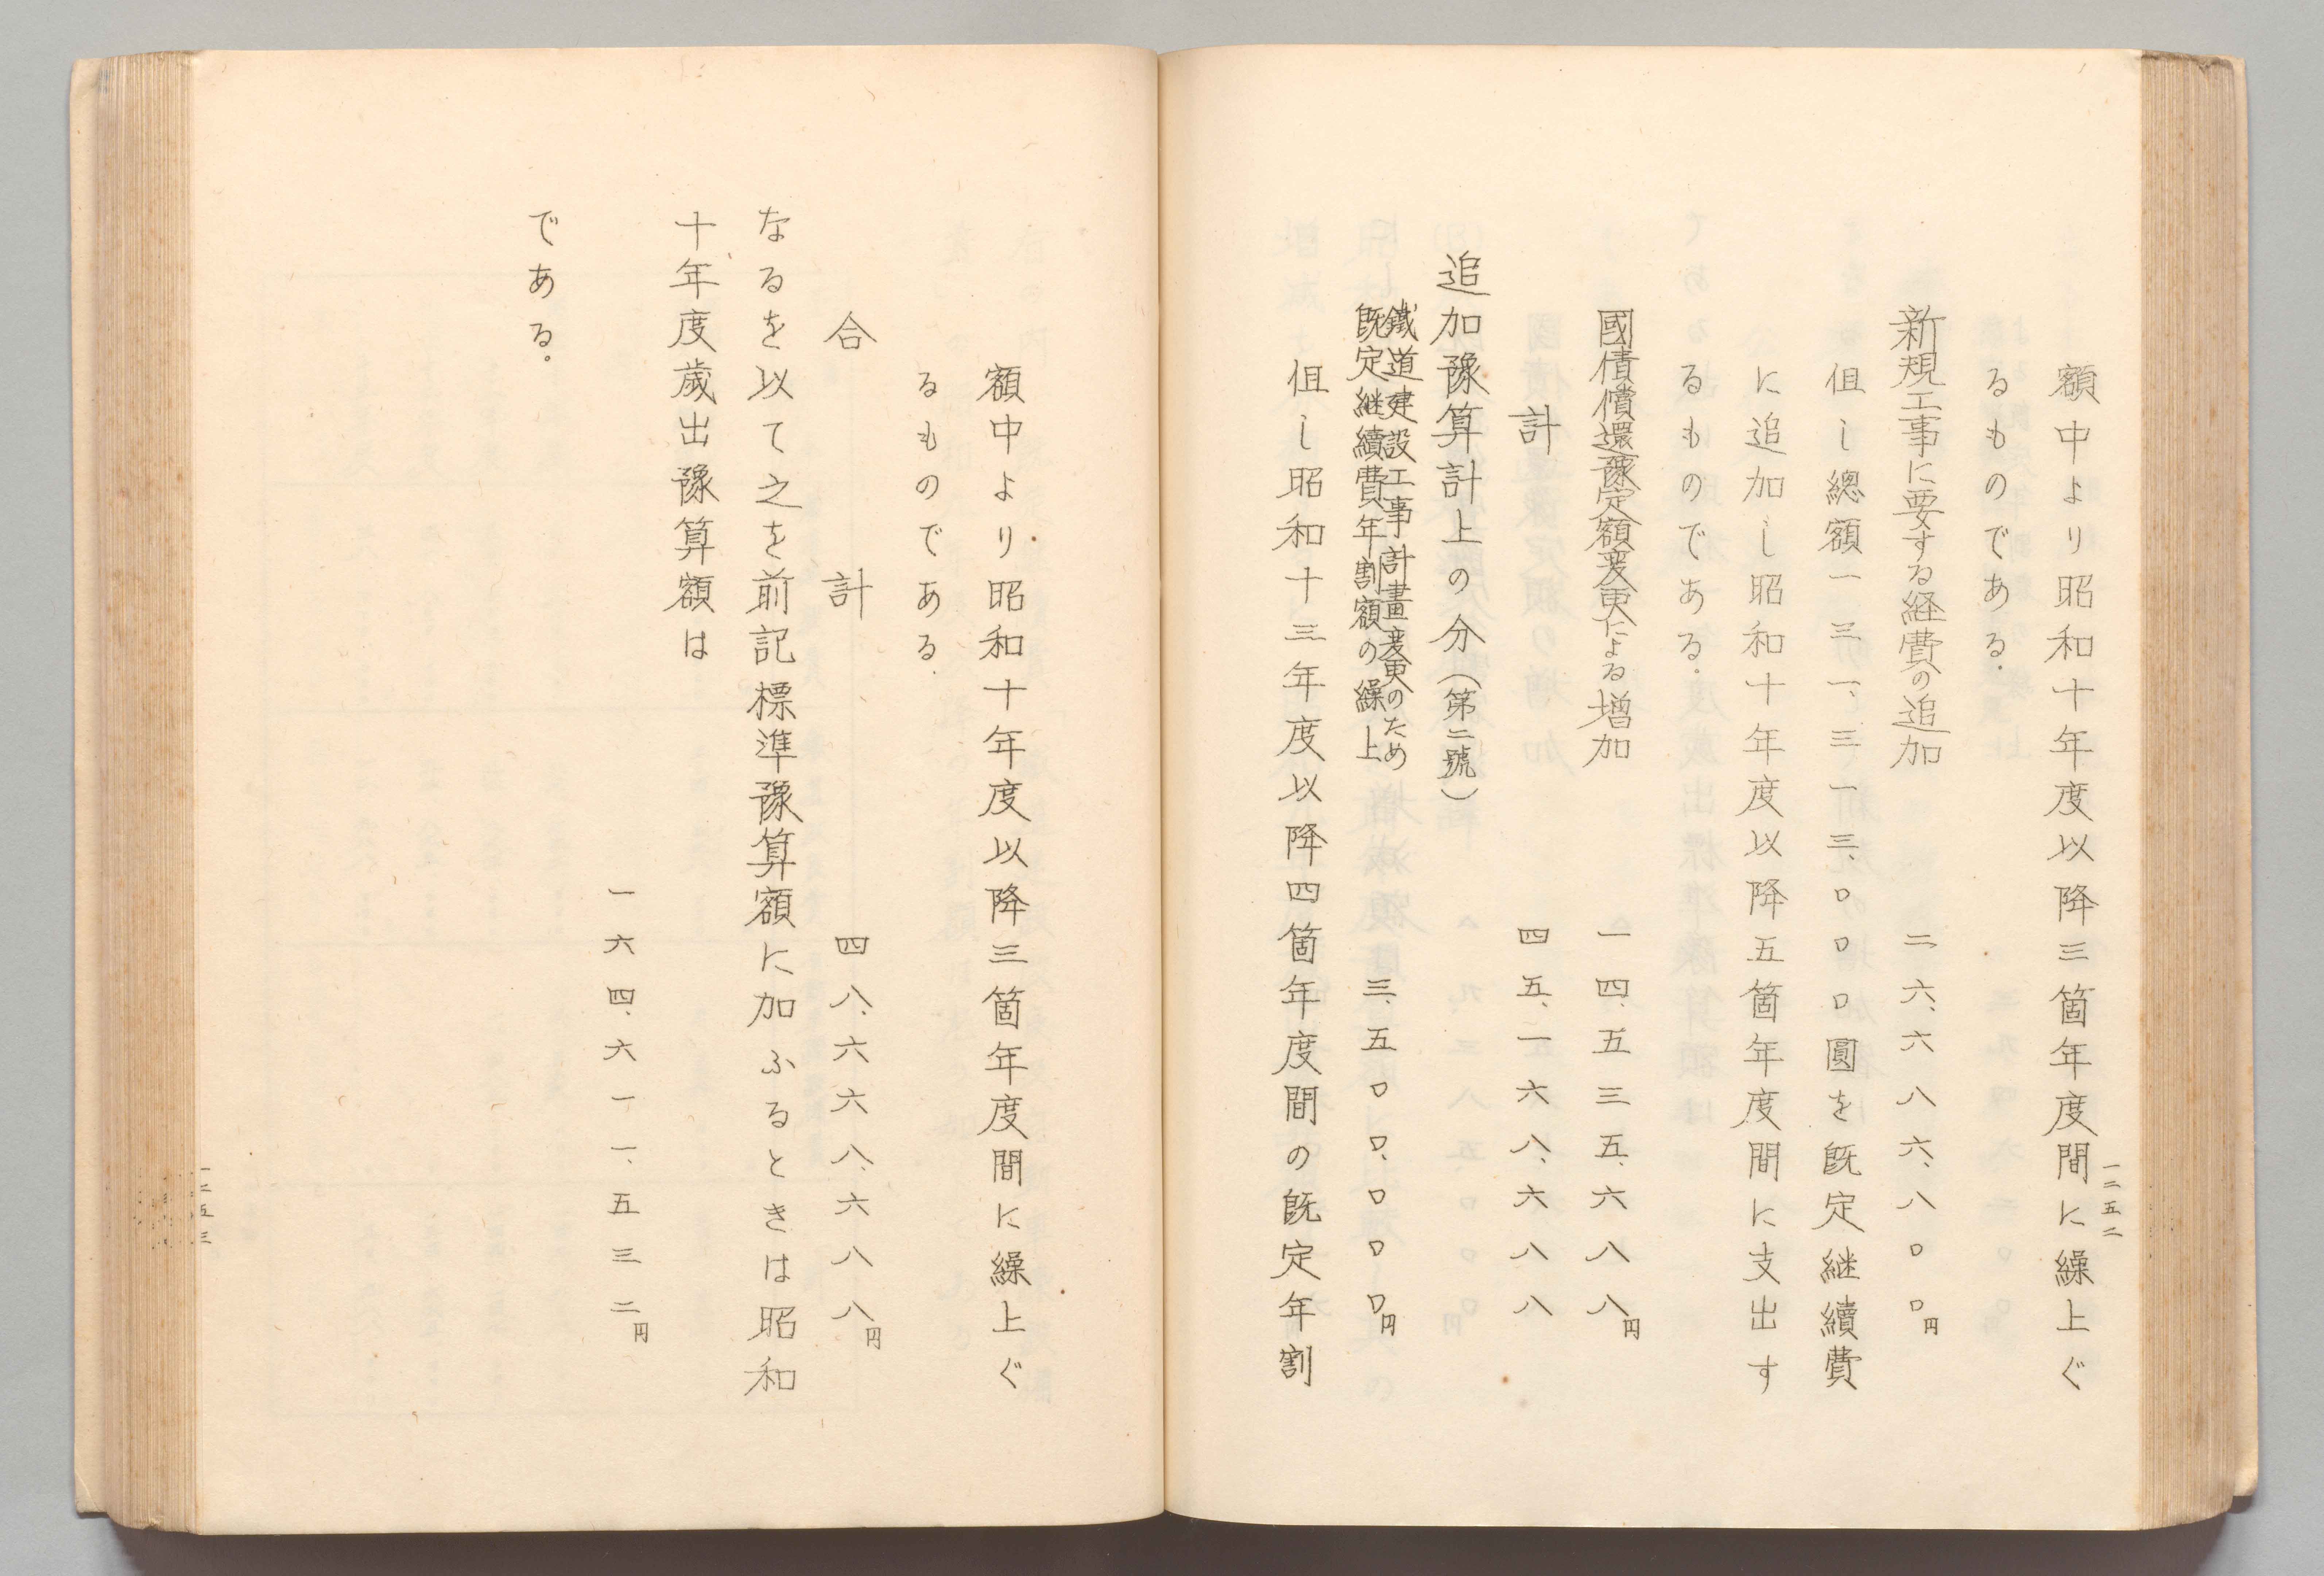 一二五二
額中より昭和十年度以降三箇年度間に繰上ぐ
るものである.
新規工事に要する経費の追加 二六、六八六、八〇〇円
但し總額一三一、三一三、〇〇〇圓を既定継續費
に追加し昭和十年度以降五箇年度間に支出す
るものである.
國債償還豫定額変更による増加 一四、五三五、六八八円
計 四五、一六八、六八八
追加豫算計上の分（第二號）
鐵道建設工事計畫変更のため
既定継續費年割額の繰上 三、五〇〇、〇〇〇円
但し昭和十三年度以降四箇年度間の既定年割
額中より昭和十年度以降三箇年度間に繰上ぐ
るものである.
合計 四八、六六八、六八八円
なるを以て之を前記標準豫算額に加ふるときは昭和
十年度歳出豫算額は
一六四、六一一、五三二円
である。
一二五三